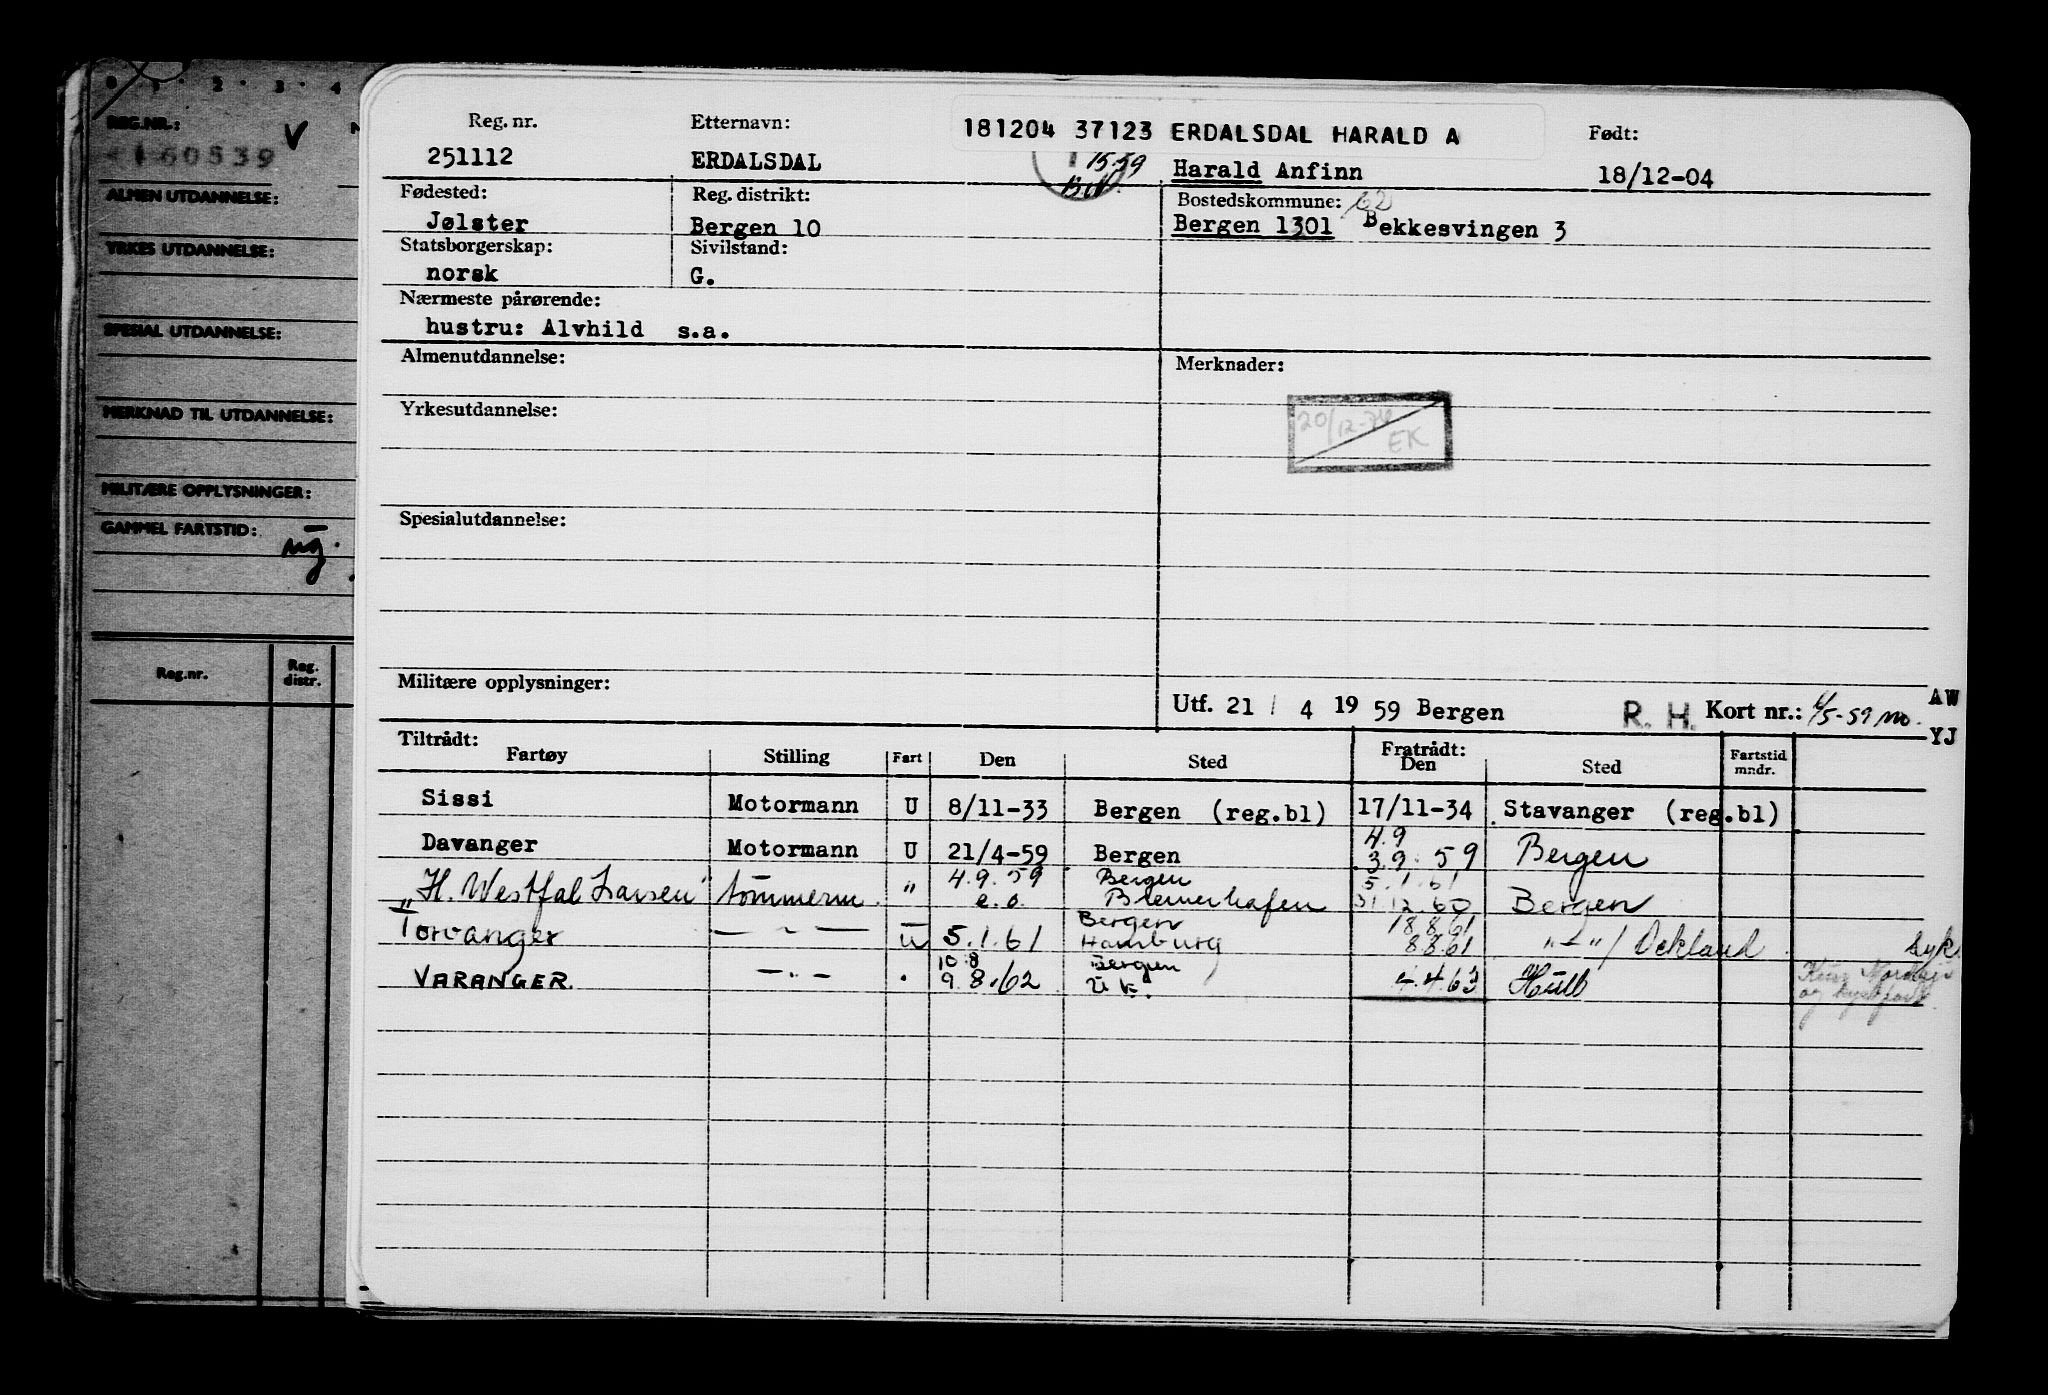 0 1 · 2 · 3 · 4
REG.NR.: V
160839
ALMEN UTDANNELSE:
YRKES UTDANNELSE:
SPESIAL UTDANNELSE:
MERKNAD TIL UTDANNELSE:
MILITÆRE OPPLYSNINGER:
GAMMEL FARTSTID:
Reg.nr. Reg. distr.
Reg. nr. Etternavn: 181204 37123 ERDALSDAL HARALD A Født:
251112 ERDALSDAL 15.59 Harald Anfinn 18/12-04
Fødested: Reg. distrikt: Bostedskommune: 62
Jølster Bergen 10 Bergen 1301 Bekkesvingen 3
Statsborgerskap: Sivilstand:
norsk G.
Nærmeste pårørende:
hustru: Alvhild s.a.
Almenutdannelse: Merknader:
Yrkesutdannelse: 20/12-74 EK
Spesialutdannelse:
Militære opplysninger: Utf. 21 / 4 19 59 Bergen R. H. Kort nr.: 6/5-59 mo. AW
YJ
Tiltrådt: Fratrådt:
Fartøy Stilling Fart Den Sted Den Sted Fartstid mndr.
Sissi Motormann U 8/11-33 Bergen (reg.bl) 17/11-34 Stavanger (reg.bl)
Davanger Motormann U 21/4-59 Bergen 4.9 3.9.59 Bergen
"H. Westfal Larsen" tømmerm. " 4.9.59 e.o. Bergen Bremerhafen 5.1.61 31.12.60 Bergen
Torvanger — " — U 5.1.61 Bergen Hamburg 18.8.61 8.8.61 " — " / Dekland syk
VARANGER — " — " 10.8 9.8.62 Bergen U.K. 4.4.63 Hull